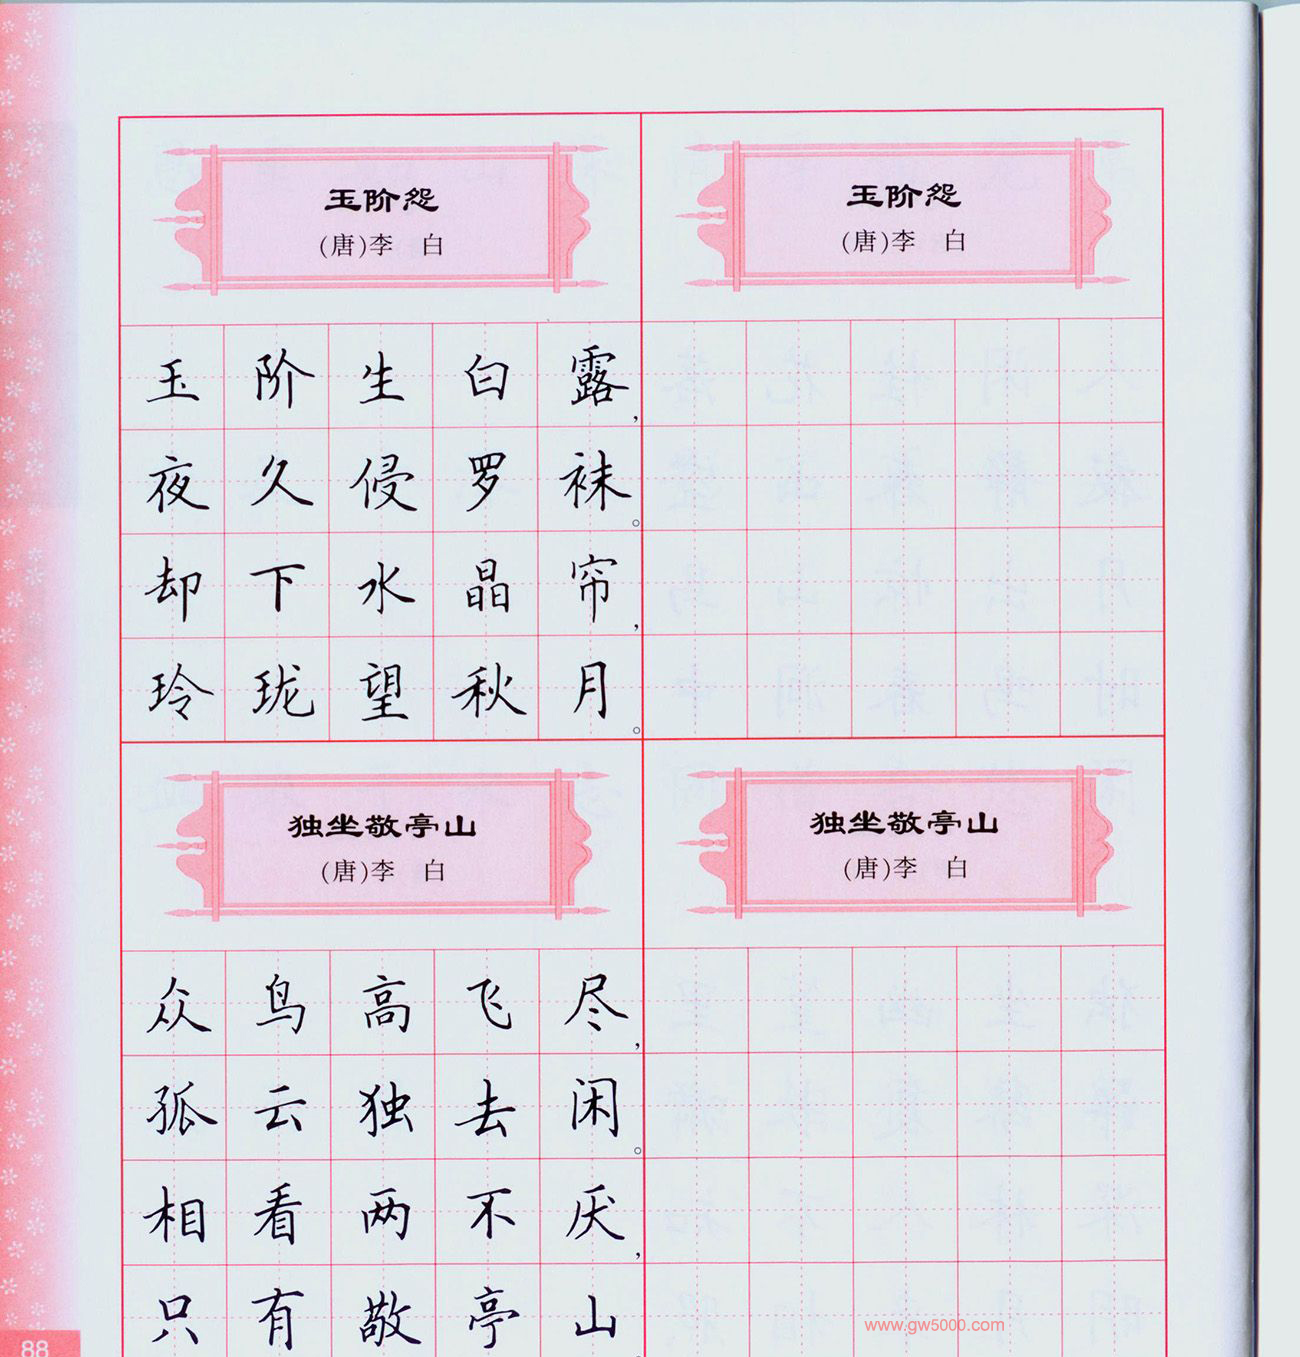 玉阶怨
(唐)李 白
玉阶生白露，
夜久侵罗袜。
却下水晶帘，
玲珑望秋月。
玉阶怨
(唐)李 白
独坐敬亭山
(唐)李 白
众鸟高飞尽，
孤云独去闲。
相看两不厌，
只有敬亭山
独坐敬亭山
(唐)李 白
www.gw5000.com
88